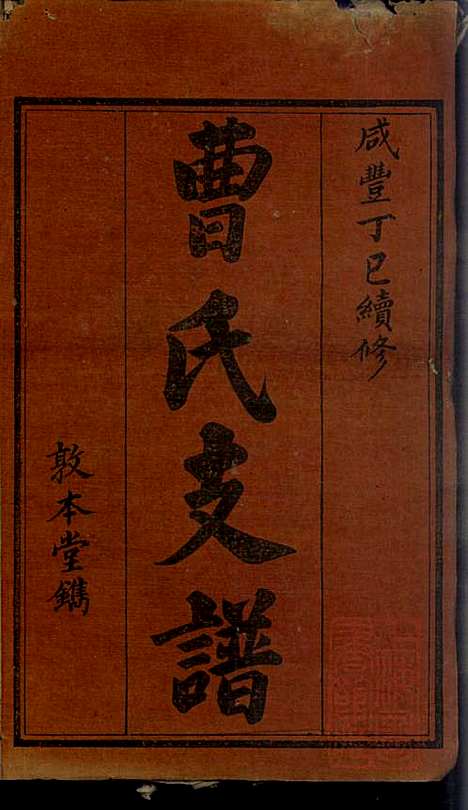 咸豐丁巳續修
曹氏支譜
敦本堂鐫